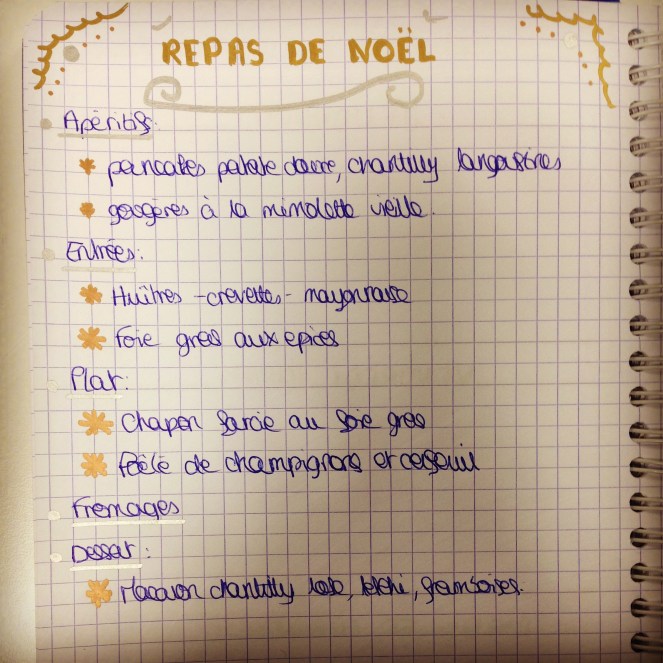 REPAS DE NOËL
Apéritifs:
pancakes patate douce, chantilly langoustines
gougères à la mimolette vieille.
Entrées:
Huîtres - crevettes - mayonnaise
foie gras aux epices
Plat:
Chapon farcie au foie gras
Poêlé de champignons et cerfeuil
Fromages
Dessert:
Macaron chantilly rose, letchi, framboises.